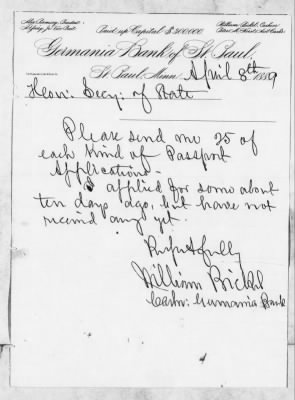 William Bickel, Cashier
Paid up Capital $200000
Germania Bank of St Paul,
St Paul, Minn. April 8th 1889
Hon. Secy. of State
Please send me 25 of
each kind of Passport
Applications -
I applied for some about
ten days ago, but have not
received any yet.
Respectfully
William Bickel
Cashr. Germania Bank